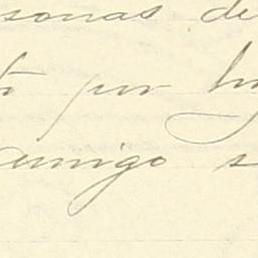 sonas de
por
amigo s